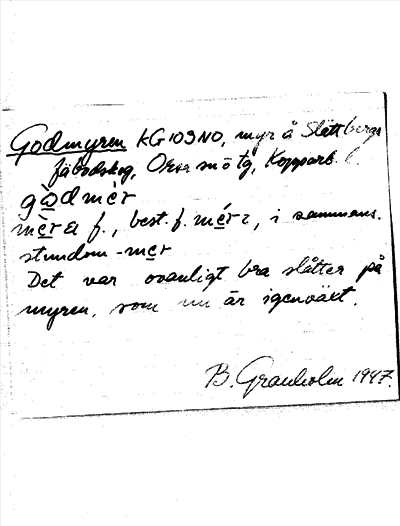 Godmyren KG 109 NO, myr å Slättbergs
fäbodskog, Orsa snötg, Kopparb. l.
gòdmèr
mèra f., best. f. mérɩ, i sammans.
stundom -mer
Det var ovanligt bra slåtter på
myren, som nu är igenväxt.
B. Granholm 1947.